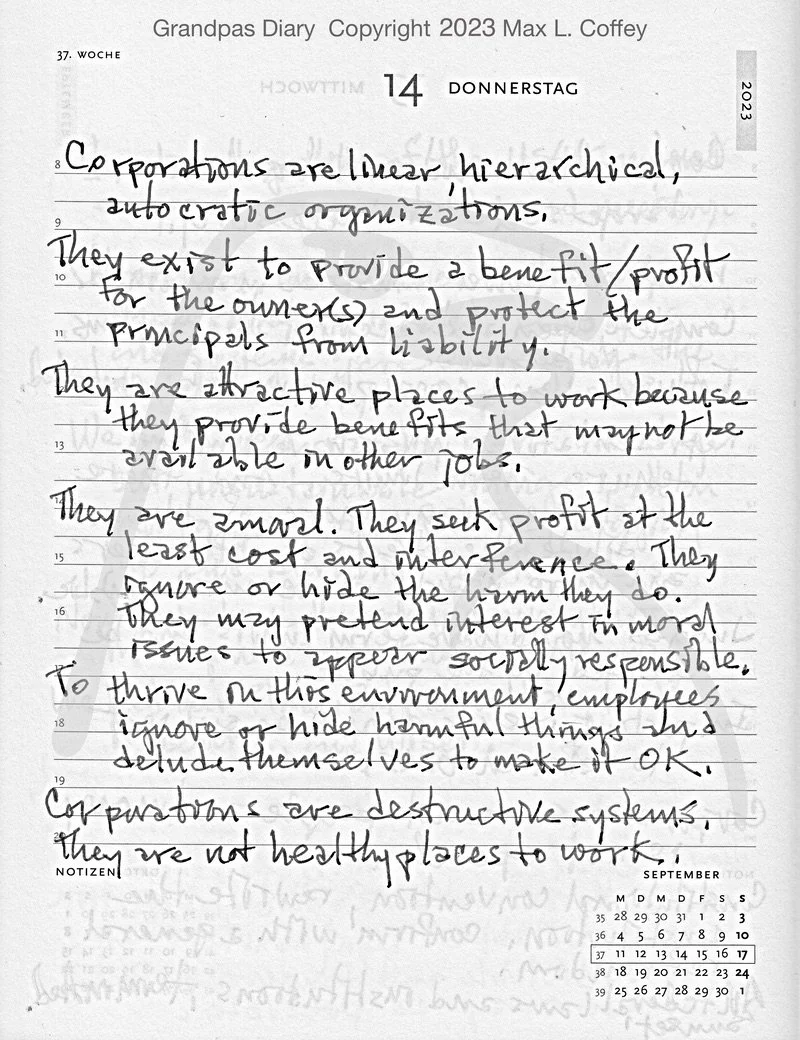 Grandpas Diary Copyright 2023 Max L. Coffey
37. WOCHE
14 DONNERSTAG
2023
8 Corporations are linear, hierarchical,
autocratic organizations.
9
They exist to provide a benefit/profit
10 for the owner(s) and protect the
11 principals from liability.
They are attractive places to work because
they provide benefits that may not be
13 available in other jobs.
They are amoral. They seek profit at the
15 least cost and interference. They
ignore or hide the harm they do.
16 They may pretend interest in moral
issues to appear socially responsible.
To thrive in this environment, employees
18 ignore or hide harmful things and
delude themselves to make it OK.
19
Corporations are destructive systems.
They are not healthy places to work.
NOTIZEN
SEPTEMBER
M D M D F S S
35 28 29 30 31 1 2 3
36 4 5 6 7 8 9 10
37 11 12 13 14 15 16 17
38 18 19 20 21 22 23 24
39 25 26 27 28 29 30 1